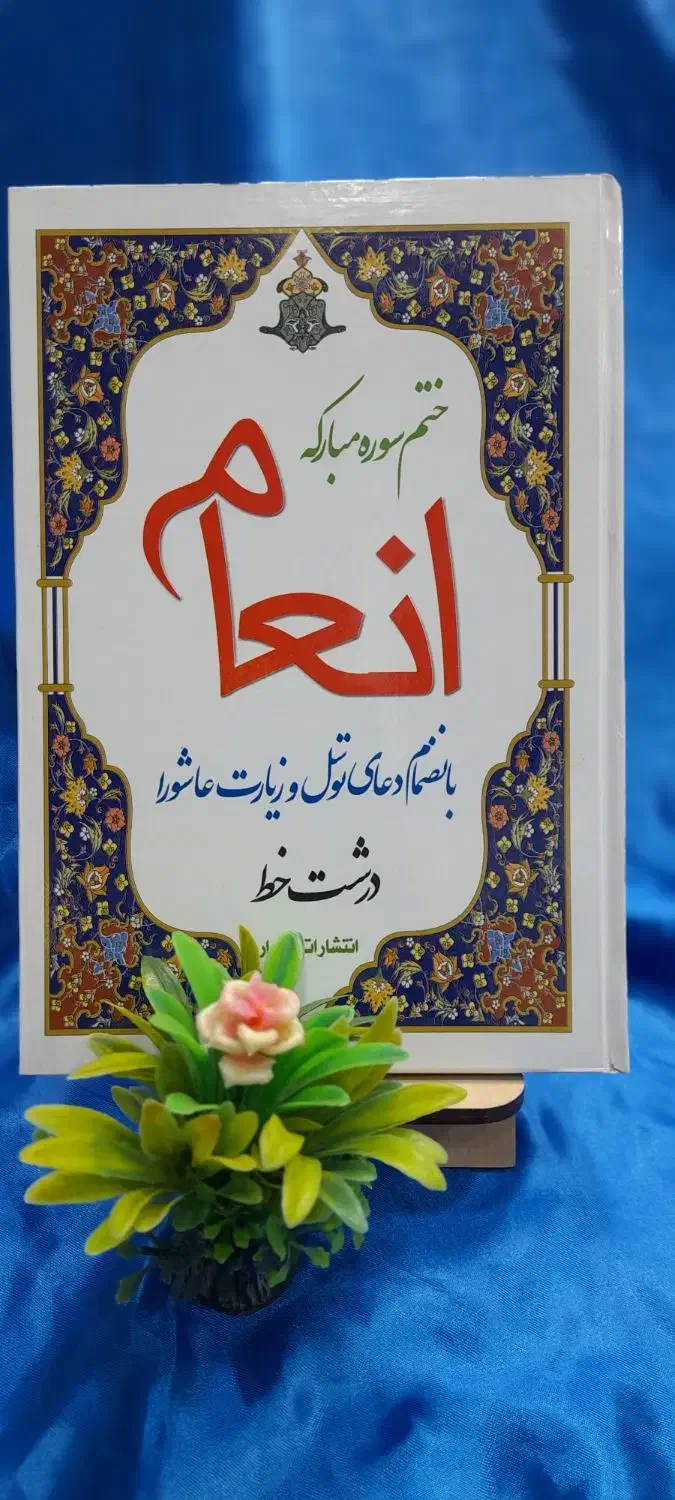 ختم سوره مبارکه
انعام
بانضمام دعای توسل و زیارت عاشورا
درشت خط
انتشارات